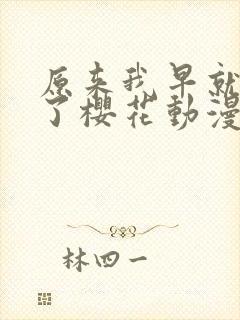 原来我早就
了樱花動漫
林四一